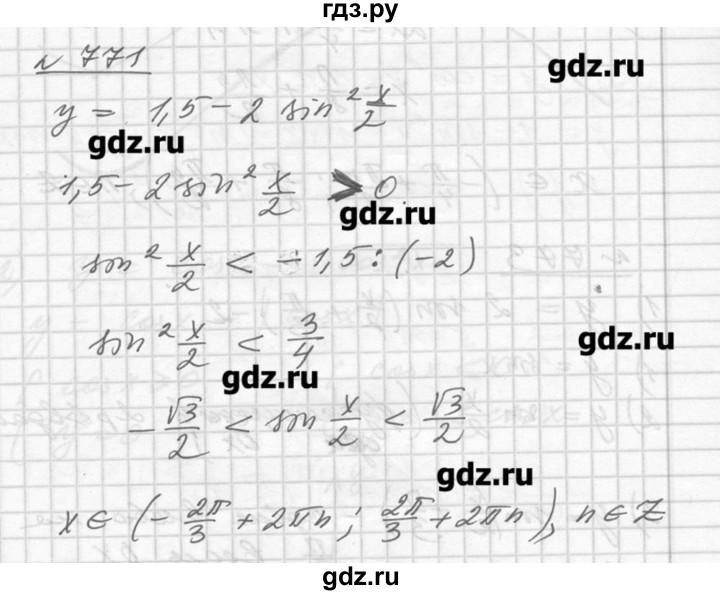 гдз.ру
№ 771
gdz.ru
y = 1,5 - 2 sin² x/2
gdz.ru
1,5 - 2 sin² x/2 > 0
gdz.ru
sin² x/2 < -1,5 : (-2)
sin² x/2 < 3/4
gdz.ru
gdz.ru
-√3/2 < sin x/2 < √3/2
gdz.ru
x ∈ (-2π/3 + 2πn; 2π/3 + 2πn), n ∈ Z
gdz.ru